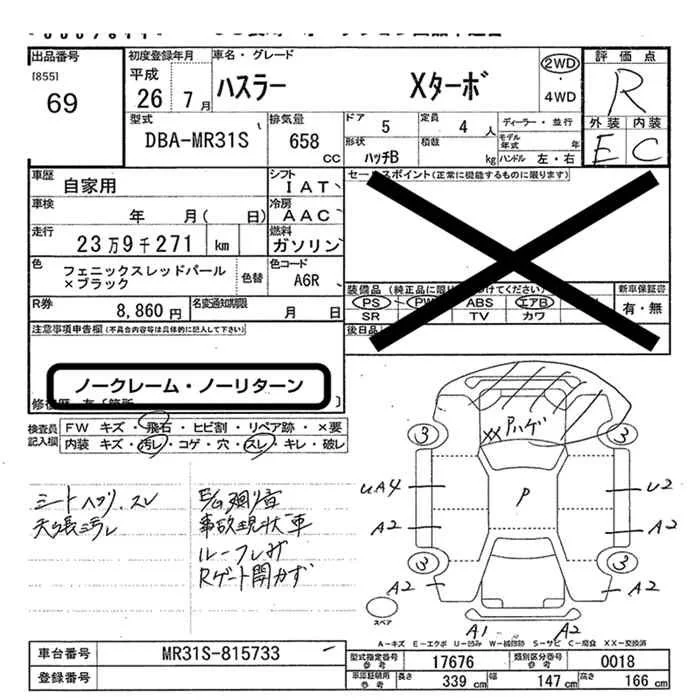 出品番号 初度登録年月 車名・グレード 評価点
[855] 平成 ハスラー Xターボ 2WD
69 26 7月 ・ R
4WD
型式 排気量 ドア 定員 ディーラー・並行 外装 内装
DBA-MR31S 658 CC 5 4 人 モデル年式 年 E C
形状 積載
ハッチB kg ハンドル 左・右
車歴 自家用 シフト IAT セールスポイント(正常に機能するものに限ります)
車検 年 月( 日) 冷房 AAC
走行 23万9千271 km 燃料 ガソリン
色 フェニックスレッドパール 色替 色コード
×ブラック A6R
装備品 (純正品に限り 付けてください) 新車保証書
PS PW ABS エアB 有・無
SR TV カワ
R券 8,860円 名変通知期限 月 日
後日品
注意事項申告欄(不具合内容等は具体的に記入して下さい)
ノークレーム・ノーリターン
検査員 FW キズ・飛石・ヒビ割・リペア跡・×要
記入欄 内装 キズ・汚レ・コゲ・穴・スレ・キレ・破レ
天張汚レ
事故現状車
Rゲート開かず
XX Pハゲ
3 3
UA4 P U2
A2 A2
3 3
A2 A2
スペア
A1 A2
A-キズ E-エクボ U-凹み W-補修跡 S-サビ C-腐食 XX-交換済
車台番号 MR31S-815733
登録番号
型式指定番号 参考 17676 類別区分番号 参考 0018
車庫証明用 参考 長さ 339 cm 幅 147 cm 高さ 166 cm